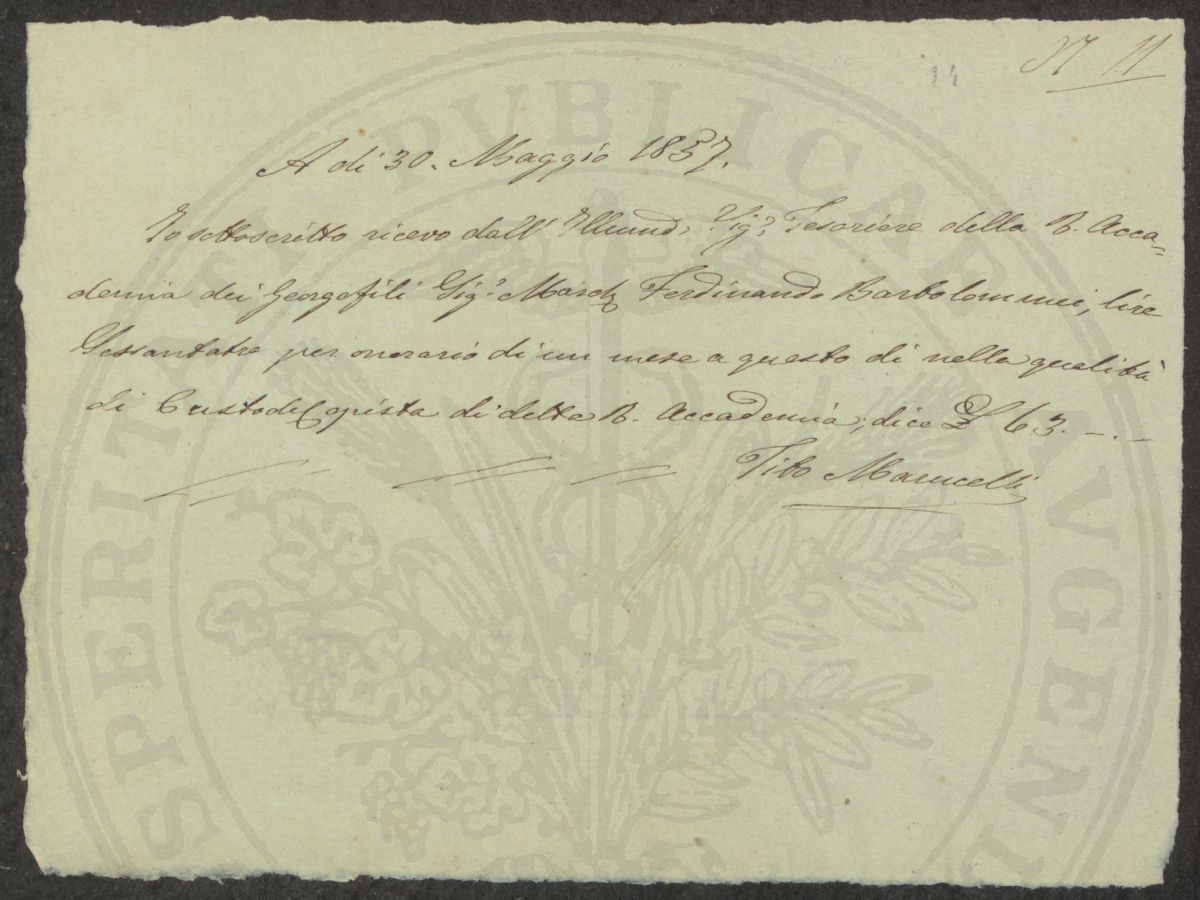 N 11
14
A di 30. Maggio 1857.
Io sottoscritto ricevo dall' Sig.e Tesoriere della R. Acca=
demia dei Georgofili Sig.e March Ferdinando Bartolommei, lire
Sessantatre per onorario di un mese a questo di nella qualità
di Custode Copista di detta R. Accademia; dice £ 63.-.-
Tito Marucelli
PROSPERITATI PVBLICAE AVGENDAE